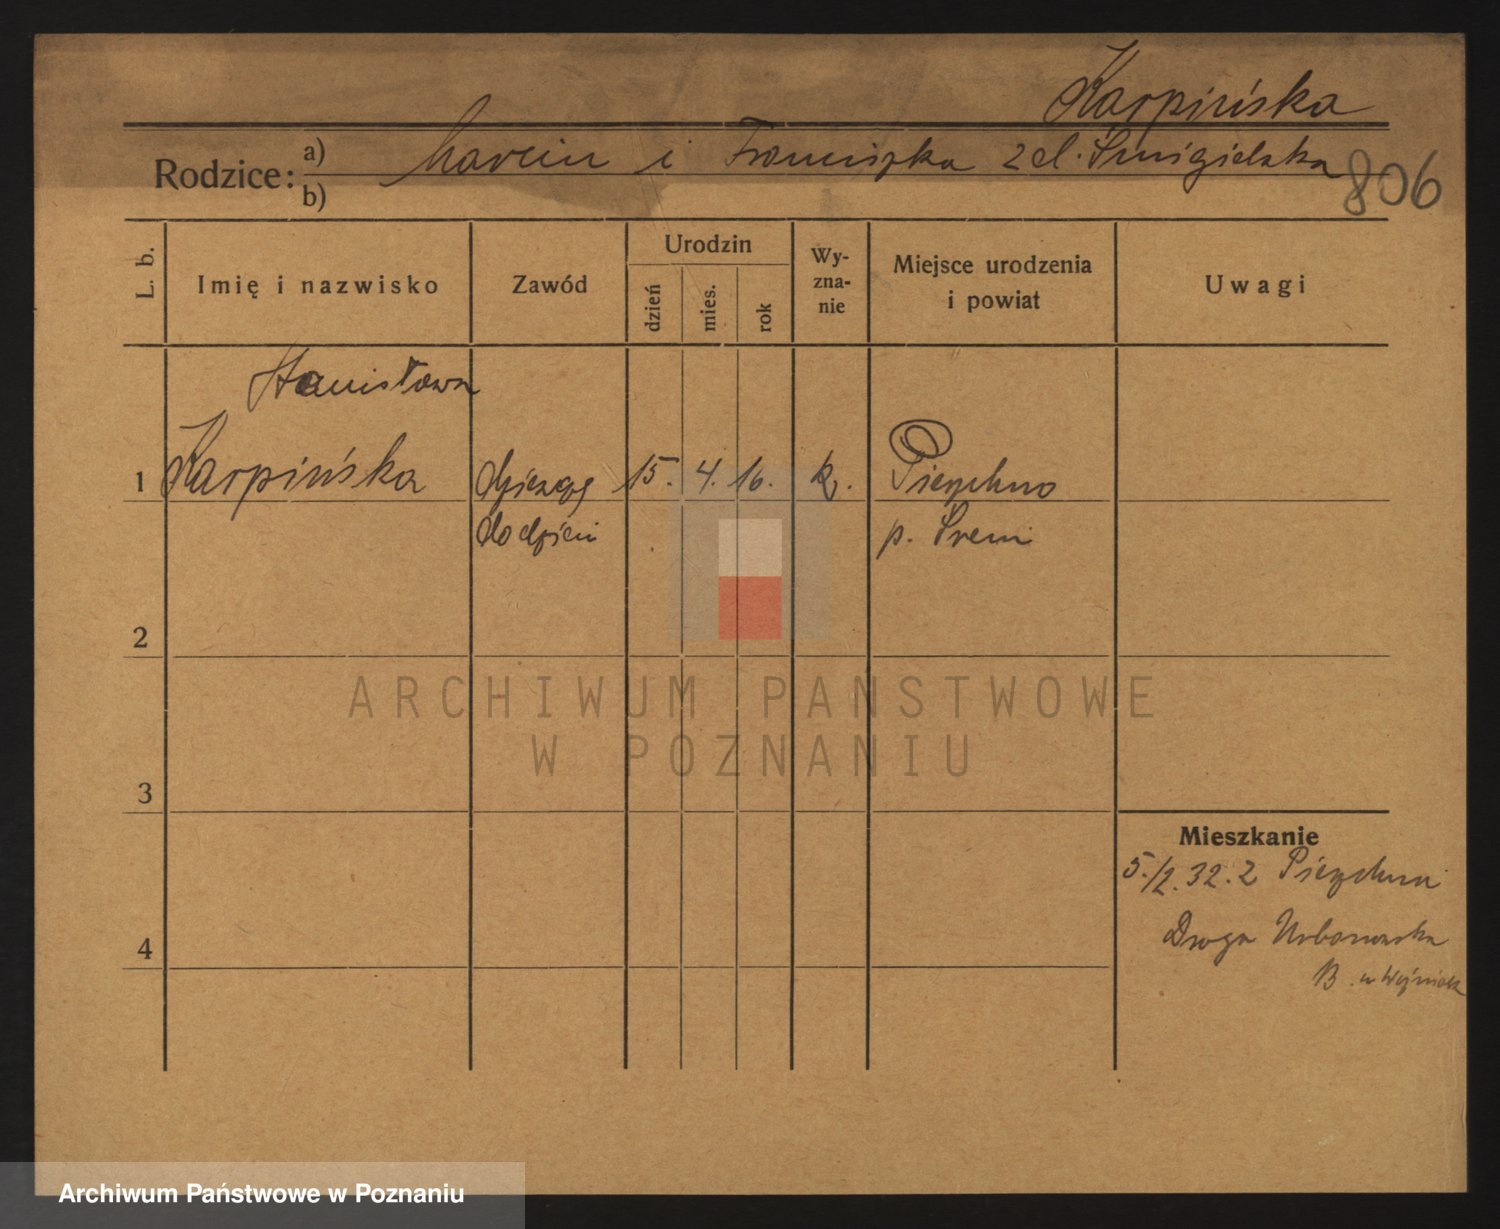 Karpińska
Rodzice:
a) Marcin i Franciszka z d. Śmigielska
b)
806
L. b.
Imię i nazwisko
Zawód
Urodzin
dzień
mies.
rok
Wy-
zna-
nie
Miejsce urodzenia
i powiat
Uwagi
Stanisława
1 Karpińska
15. 4. 16. k.
Pierzchno
do dzieci
p. Śrem
2
ARCHIWUM PAŃSTWOWE
W POZNANIU
3
Mieszkanie
5./2. 32. z Pierzchna
Droga Urbanowska
4
B. u Woźniak
Archiwum Państwowe w Poznaniu